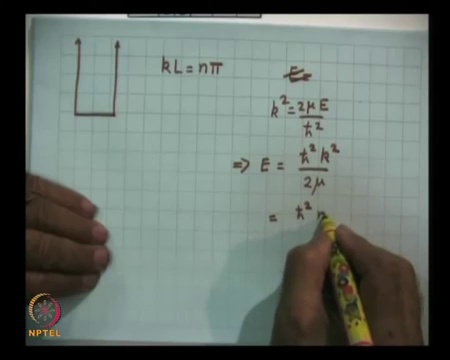 kL = nπ
E
k² = 2μE / ħ²
⇒ E = ħ² k² / 2μ
= ħ² n
NPTEL